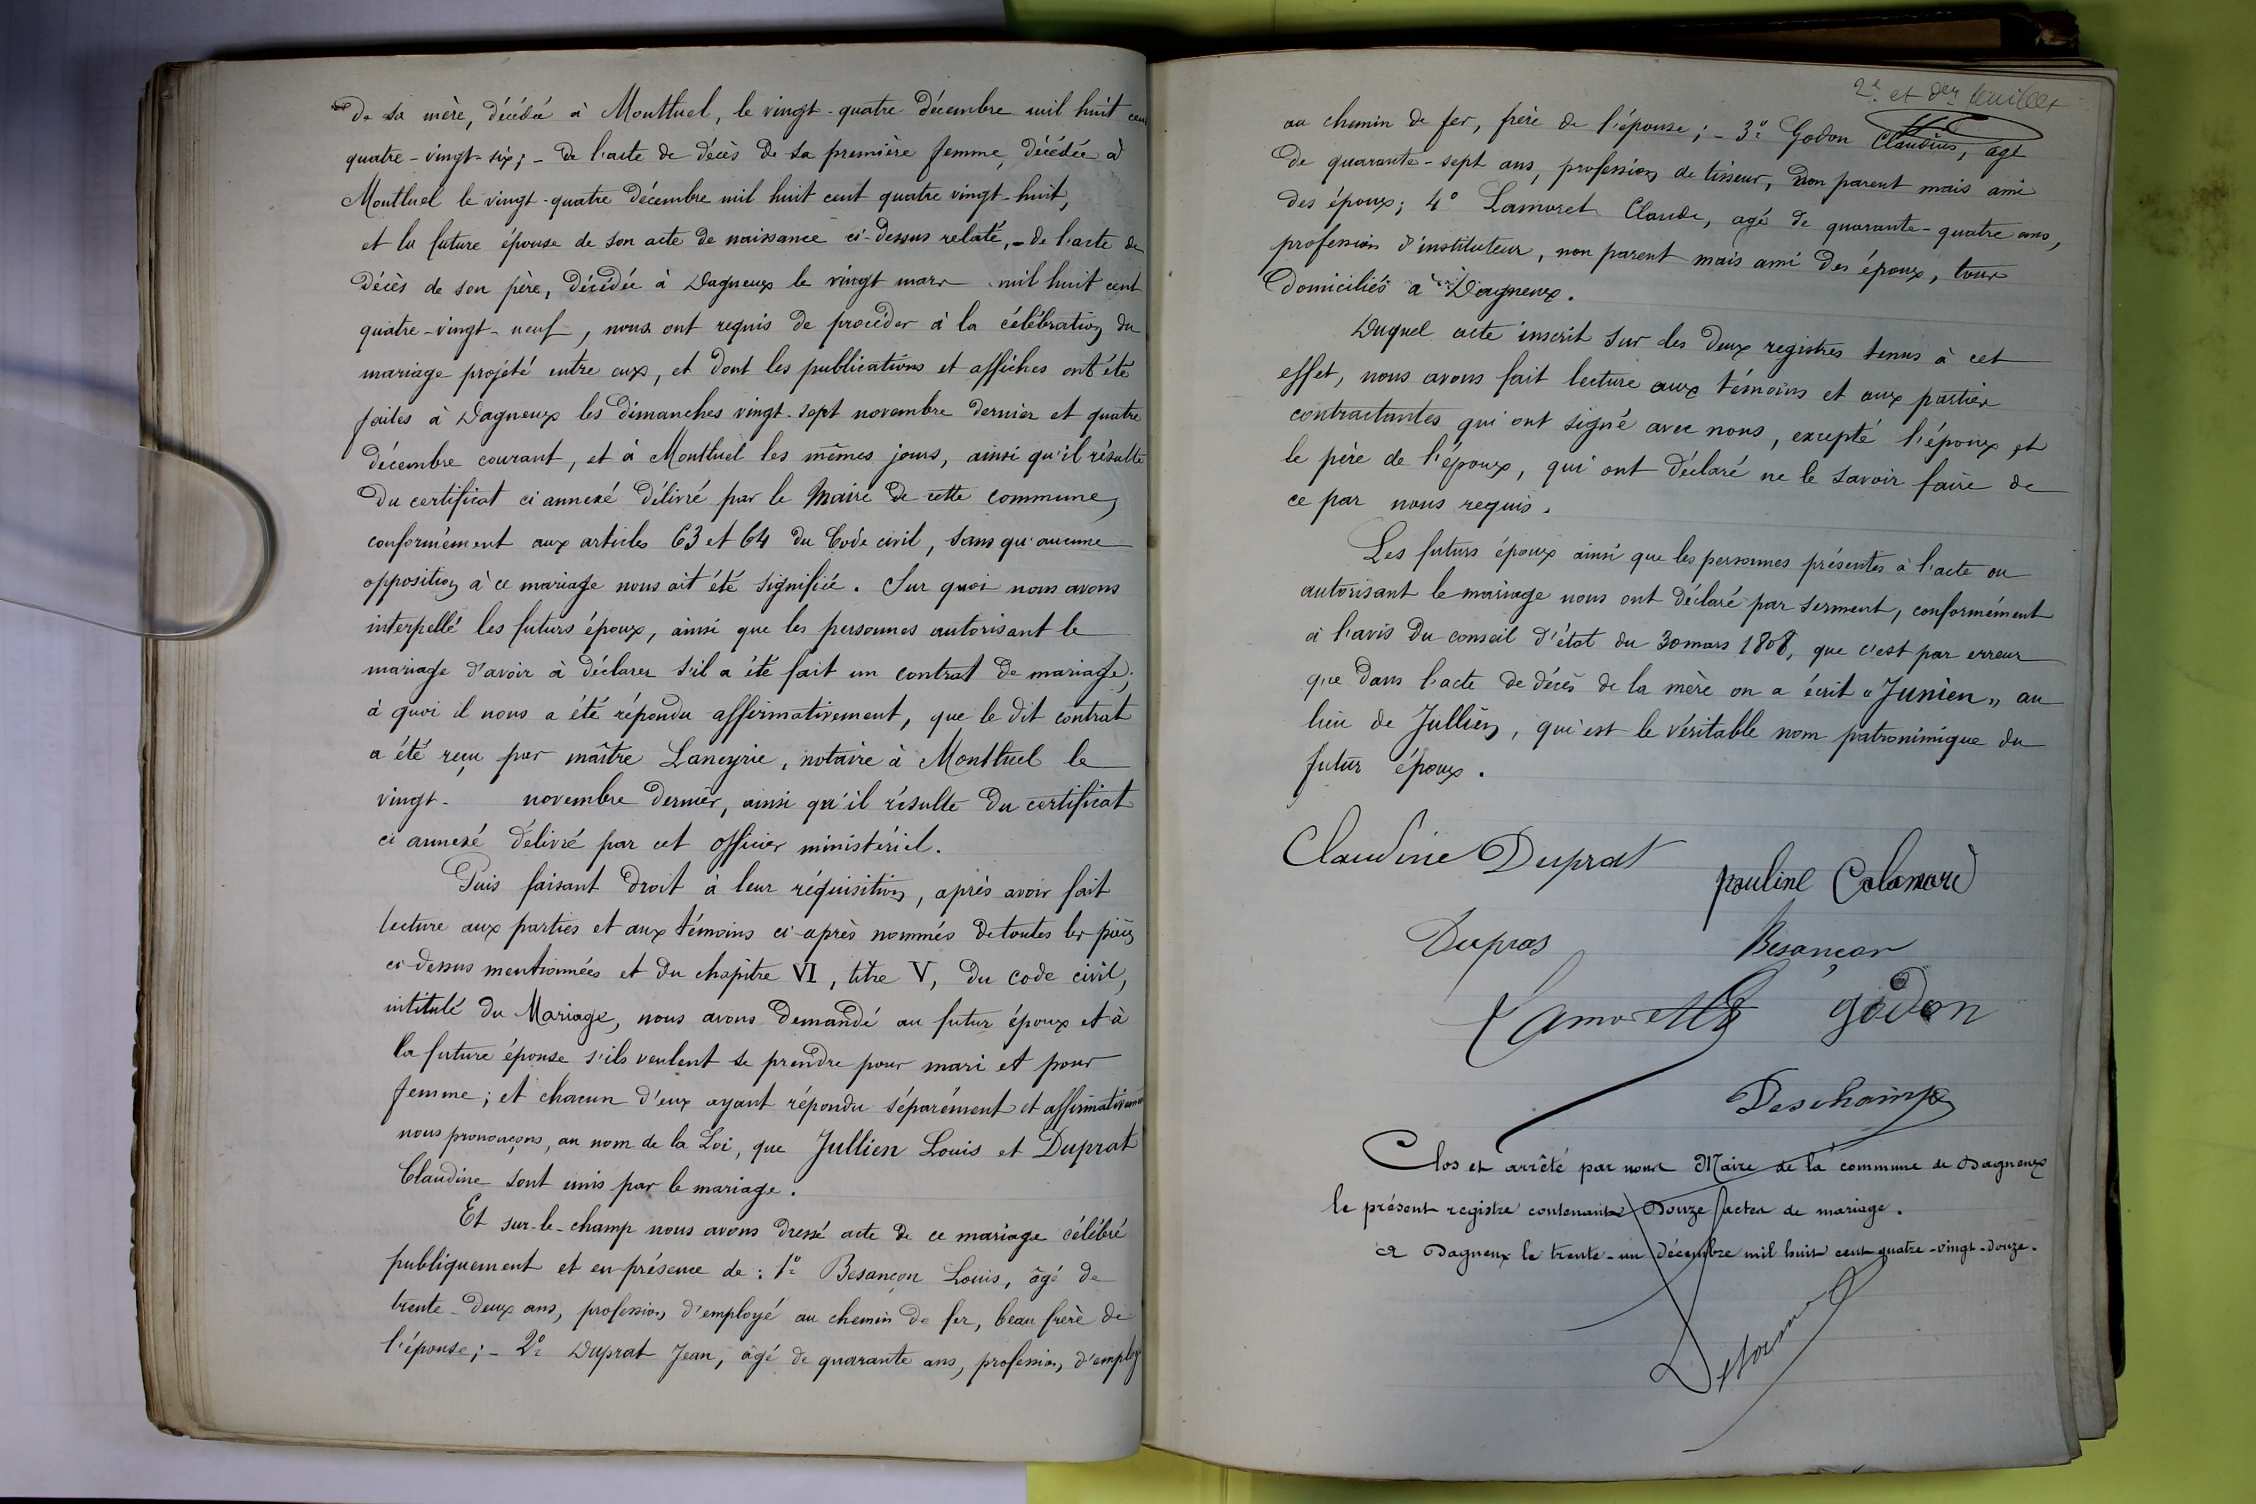 de sa mère, décédée à Montluel, le vingt-quatre décembre mil huit cent
quatre-vingt-six; - de l'acte de décès de sa première femme, décédée à
Montluel le vingt-quatre décembre mil huit cent quatre vingt-huit,
et la future épouse de son acte de naissance ci-dessus relaté, - de l'acte de
décès de son père, décédée à Dagneux le vingt mars mil huit cent
quatre-vingt-neuf, nous ont requis de procéder à la célébration du
mariage projeté entre eux, et dont les publications et affiches ont été
faites à Dagneux les dimanches vingt-sept novembre dernier et quatre
décembre courant, et à Montluel les mêmes jours, ainsi qu'il résulte
du certificat ci annexé délivré par le Maire de cette commune,
conformément aux articles 63 et 64 du Code civil, sans qu'aucune
opposition à ce mariage nous ait été signifiée. Sur quoi nous avons
interpellé les futurs époux, ainsi que les personnes autorisant le
mariage d'avoir à déclarer s'il a été fait un contrat de mariage;
à quoi il nous a été répondu affirmativement, que le dit contrat
a été reçu par maître Laneyrie, notaire à Montluel le
vingt- novembre dernier, ainsi qu'il résulte du certificat
ci annexé délivré par cet officier ministériel.
Puis faisant droit à leur réquisition, après avoir fait
lecture aux parties et aux témoins ci-après nommés de toutes les pièces
ci-dessus mentionnées et du chapitre VI, titre V, du code civil,
intitulé du Mariage, nous avons demandé au futur époux et à
la future épouse s'ils veulent se prendre pour mari et pour
femme; et chacun d'eux ayant répondu séparément et affirmativement
nous prononçons, au nom de la Loi, que Jullien Louis et Duprat
Claudine sont unis par le mariage.
Et sur-le-champ nous avons dressé acte de ce mariage célébré
publiquement et en présence de : 1º Besançon Louis, âgé de
trente-deux ans, profession d'employé au chemin de fer, beau frère de
l'épouse; - 2º Duprat Jean, âgé de quarante ans, profession d'employé
2e et der feuillet
au chemin de fer, frère de l'épouse; - 3º Godon Claudius, agé
de quarante-sept ans, profession de tisseur, non parent mais ami
des époux; 4º Lamoret Claude, agé de quarante-quatre ans,
profession d'instituteur, non parent mais ami des époux, tous
domiciliés à Dagneux.
Duquel acte inscrit sur les deux registres tenus à cet
effet, nous avons fait lecture aux témoins et aux parties
contractantes qui ont signé avec nous, excepté l'époux et
le père de l'époux, qui ont déclaré ne le savoir faire de
ce par nous requis.
Les futurs époux ainsi que les personnes présentes à l'acte ou
autorisant le mariage nous ont déclaré par serment, conformément
à l'avis du conseil d'état du 30 mars 1808, que c'est par erreur
que dans l'acte de décès de la mère on a écrit "Junien" au
lieu de Jullien, qui est le véritable nom patronimique du
futur époux.
Claudine Duprat
pauline Calamard
Dupras
Besançon
Lamorette
godon
Deschamps
Clos et arrêté par nous Maire de la commune de Dagneux
le présent registre contenant Douze actes de mariage.
A Dagneux le trente-un décembre mil huit cent quatre-vingt-douze.